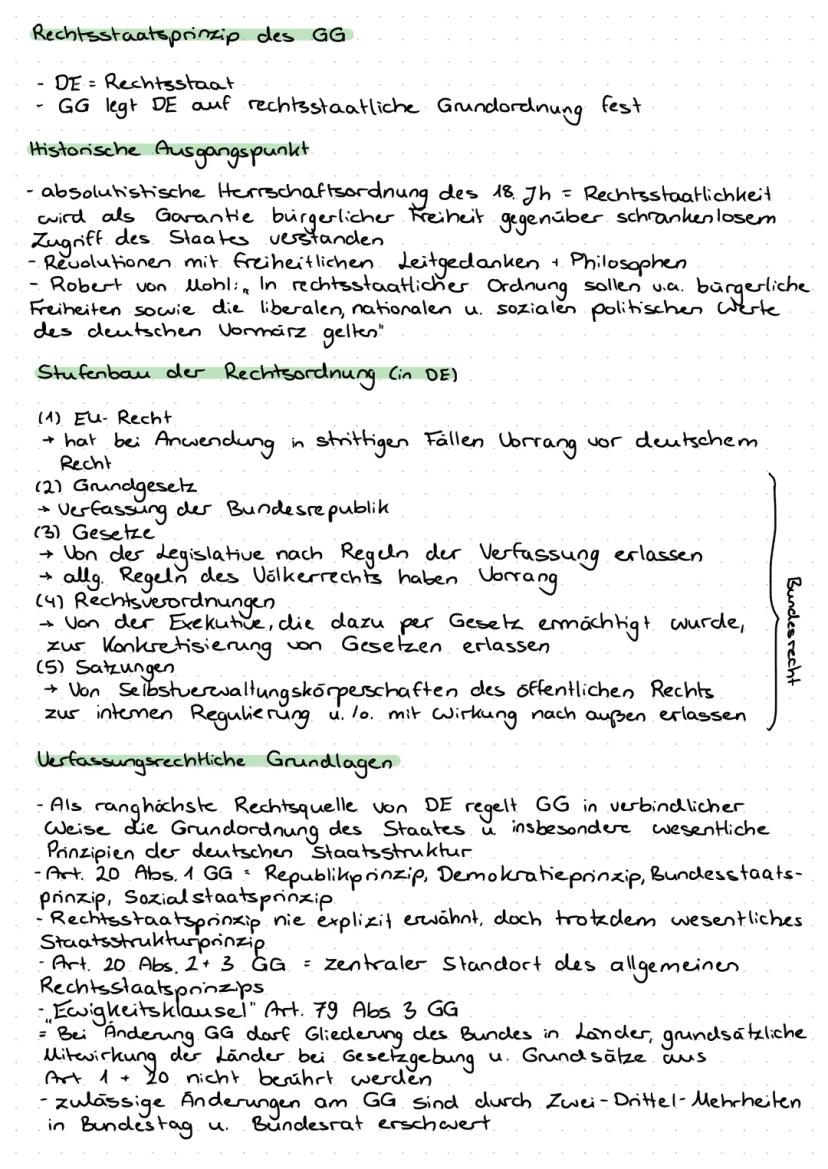 Rechtsstaatsprinzip des GG
- DE = Rechtsstaat
- GG legt DE auf rechtsstaatliche Grundordnung fest
Historische Ausgangspunkt
- absolutistische Herrschaftsordnung des 18. Jh = Rechtsstaatlichkeit
wird als Garantie bürgerlicher Freiheit gegenüber schrankenlosem
Zugriff des Staates verstanden
- Revolutionen mit freiheitlichen Leitgedanken + Philosophen
- Robert von Mohl: „In rechtsstaatlicher Ordnung sollen u.a. bürgerliche
Freiheiten sowie die liberalen, nationalen u. sozialen politischen Werte
des deutschen Vormärz gelten"
Stufenbau der Rechtsordnung (in DE)
(1) EU-Recht
→ hat bei Anwendung in strittigen Fällen Vorrang vor deutschem
Recht
(2) Grundgesetz
→ Verfassung der Bundesrepublik
(3) Gesetze
→ Von der Legislative nach Regeln der Verfassung erlassen
→ allg. Regeln des Völkerrechts haben Vorrang
(4) Rechtsverordnungen
→ Von der Exekutive, die dazu per Gesetz ermächtigt wurde,
zur Konkretisierung von Gesetzen erlassen
(5) Satzungen
→ Von Selbstverwaltungskörperschaften des öffentlichen Rechts
zur internen Regulierung u./o. mit Wirkung nach außen erlassen
Bundesrecht
Verfassungsrechtliche Grundlagen
- Als ranghöchste Rechtsquelle von DE regelt GG in verbindlicher
Weise die Grundordnung des Staates u insbesondere wesentliche
Prinzipien der deutschen Staatsstruktur
- Art. 20 Abs. 1 GG = Republikprinzip, Demokratieprinzip, Bundesstaats-
prinzip, Sozialstaatsprinzip
- Rechtsstaatsprinzip nie explizit erwähnt, doch trotzdem wesentliches
Staatsstrukturprinzip
- Art. 20 Abs. 2 + 3 GG = zentraler Standort des allgemeinen
Rechtsstaatsprinzips
- „Ewigkeitsklausel" Art. 79 Abs 3 GG
= Bei Änderung GG darf Gliederung des Bundes in Länder, grundsätzliche
Mitwirkung der Länder bei Gesetzgebung u. Grundsätze aus
Art 1 + 20 nicht berührt werden
- zulässige Änderungen am GG sind durch Zwei-Drittel-Mehrheiten
in Bundestag u. Bundesrat erschwert